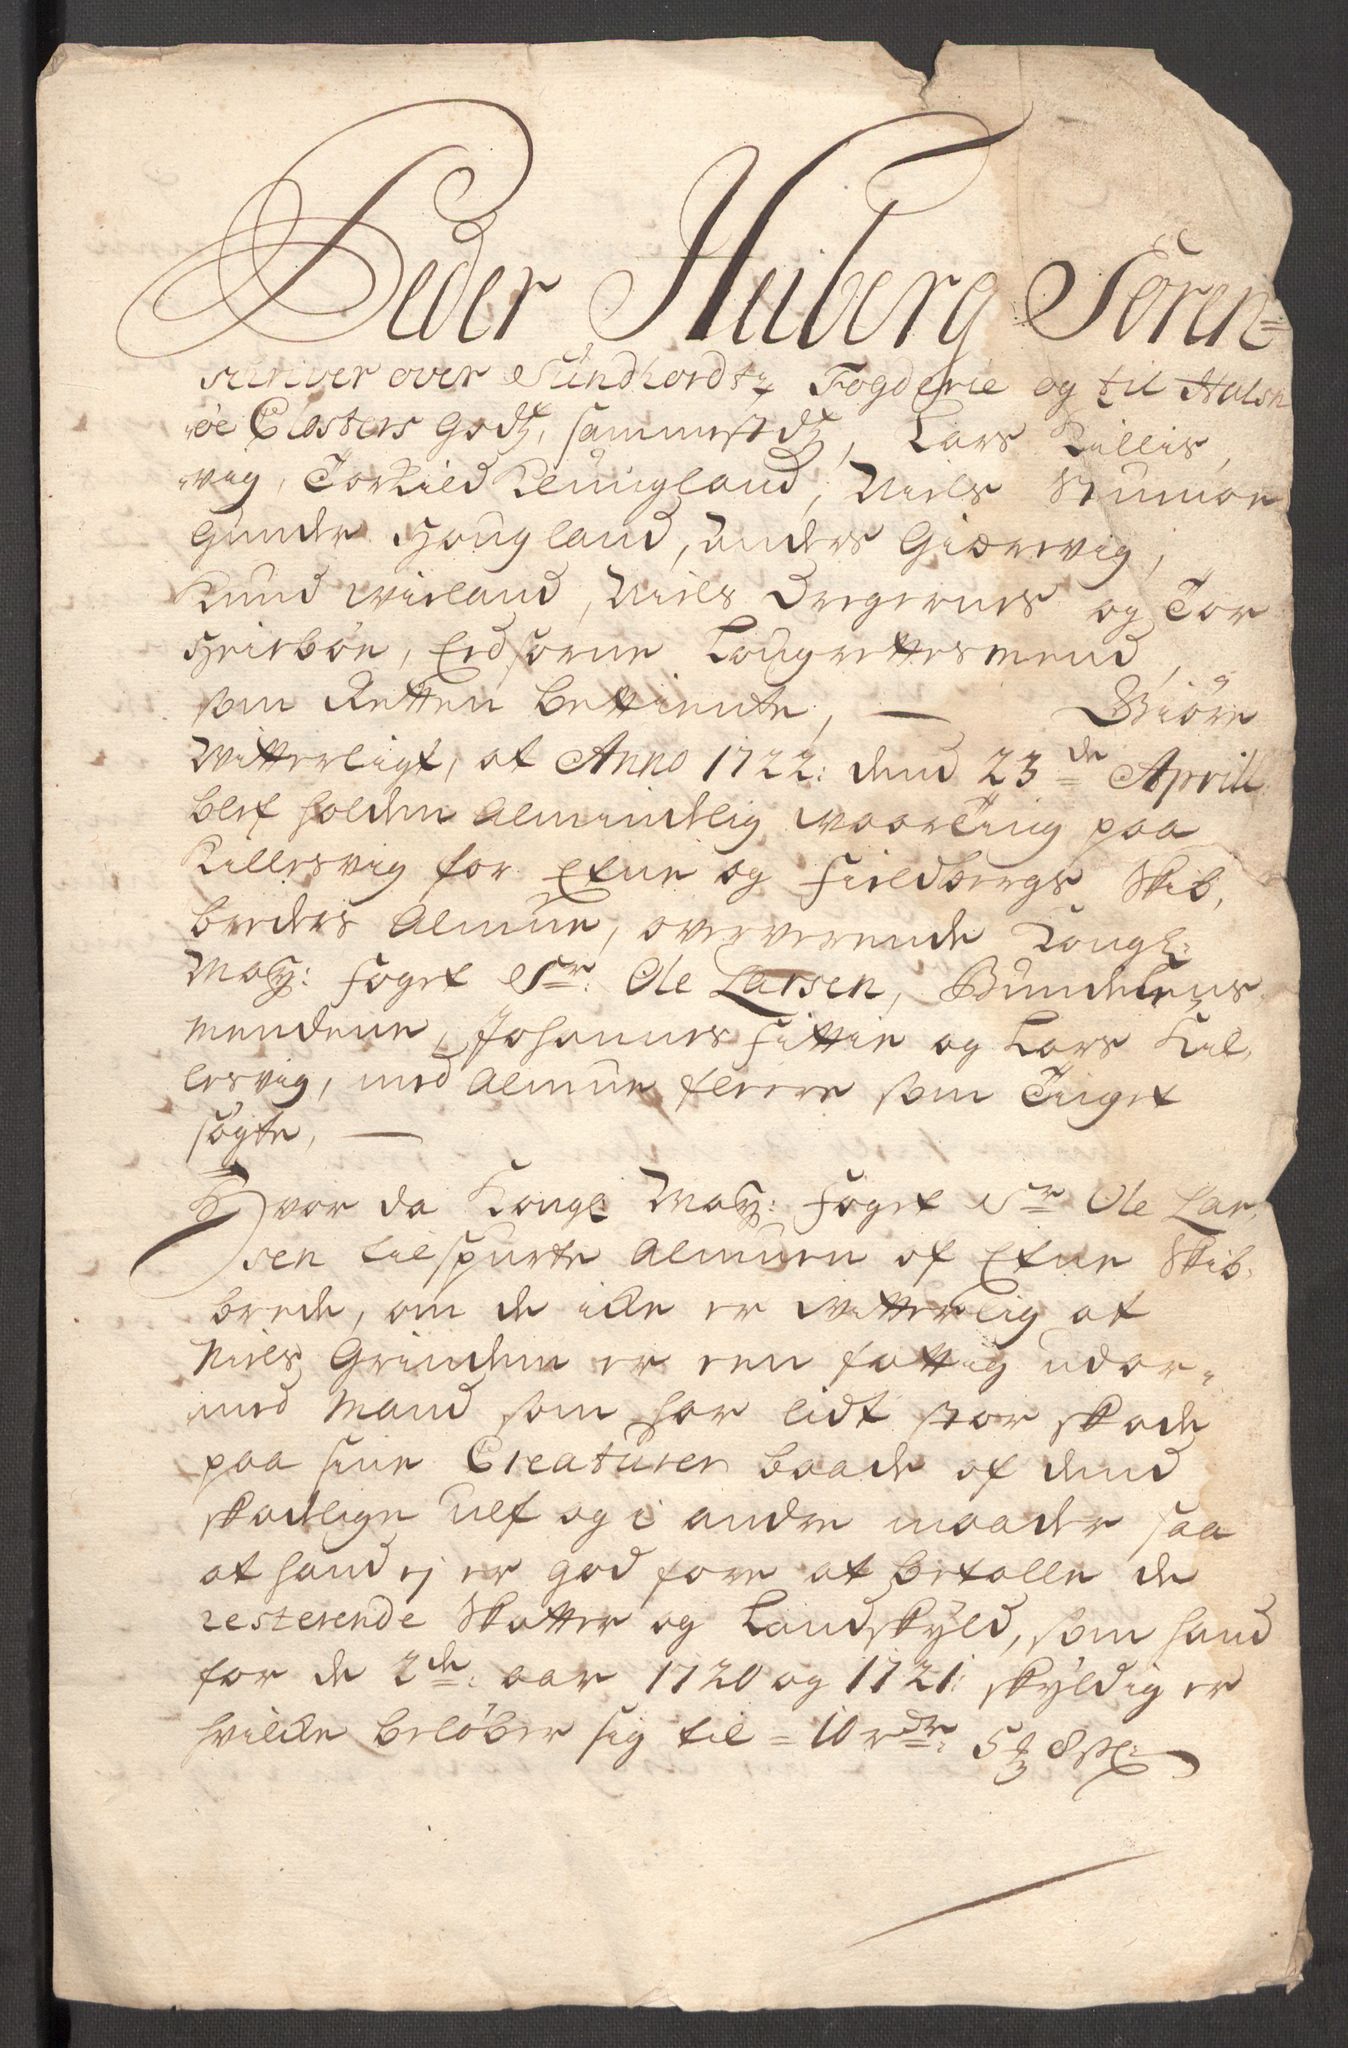 Peder Heiberg Soren=
schriver over Sundhordtz Fogderie og til Halsn
öe Closters Godtz, sammestedtz, Lars Killis,
vig, Torkild Klungland, Niels Stumöe
Gunder Hougland, Anders Giærevig,
Knud Wieland, Niels Dregernes og Tor
Heiebøe, Eedsorne Laugrettesmend,
som Retten betiente, — Giöre
Witterligt, at Anno 1722: dend 23de Aprill
blef holden Almindelig WaarTing paa
Killesvig for Etne og Fieldbergs Skib,
breders Almue, oververende Kongl:
May: Foget Sr: Ole Larsen, Bøndelens
mendene, Johannes Fittie og Lars Kil,
lesvig, med Almue fleere som Tinget
sögte, —
Hvor da Kongl: May: Foget Sr Ole Lar,
sen tilspurte Almuen af Etne Skib,
brede, om de icke er Witterlig at
Niels Grinden er een fattig udar,
med Mand som har lidt stor skade
paa sine Creaturer baade af dend
skadelige Ulf og i andre maader saa
at hand ej er god fore at betalle de
resterende Skatter og Landskyld, som hand
for de 2de: aar 1720 og 1721: skyldig er
hvilke belöber sig til = 10 rdr: 5 ₰ 8 s: